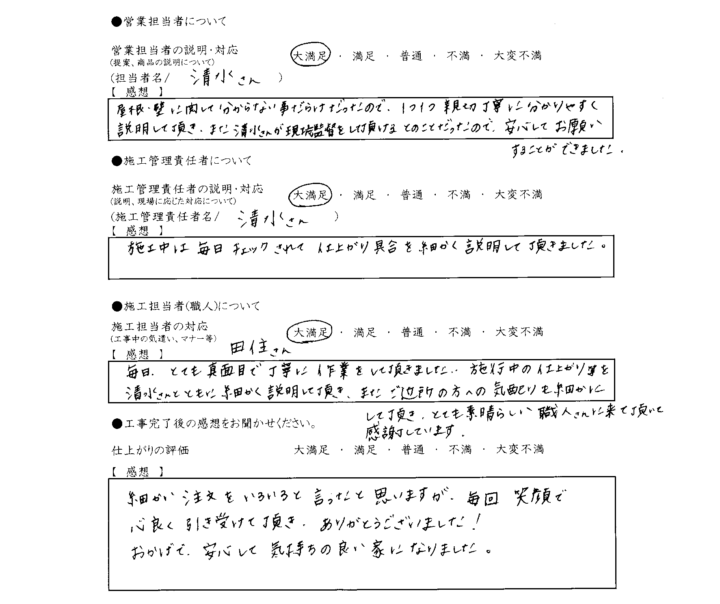 ●営業担当者について
営業担当者の説明・対応 大満足 ・ 満足 ・ 普通 ・ 不満 ・ 大変不満
(提案、商品の説明について)
(担当者名/ 清水さん )
【 感想 】
屋根・壁に関して分からない事だらけだったので、1つ1つ親切丁寧に分かりやすく
説明して頂き、また清水さんが現場監督をして頂けるとのことだったので、安心してお願い
することができました。
●施工管理責任者について
施工管理責任者の説明・対応 大満足 ・ 満足 ・ 普通 ・ 不満 ・ 大変不満
(説明、現場に応じた対応について)
(施工管理責任者名/ 清水さん )
【 感想 】
施工中は毎日チェックされて仕上がり具合を細かく説明して頂きました。
●施工担当者(職人)について
施工担当者の対応 大満足 ・ 満足 ・ 普通 ・ 不満 ・ 大変不満
(工事中の気遣い、マナー等)
田住さん
【 感想 】
毎日、とても真面目で丁寧に作業をして頂きました。施行中の仕上がり等を
清水さんとともに細かく説明して頂き、またご近所の方への気配りも細かに
して頂き、とても素晴らしい職人さんに来て頂いて
感謝しています。
●工事完了後の感想をお聞かせください。
仕上がりの評価 大満足 ・ 満足 ・ 普通 ・ 不満 ・ 大変不満
【 感想 】
細かい注文をいろいろと言ったと思いますが、毎回笑顔で
心良く引き受けて頂き、ありがとうございました!
おかげで、安心して気持ちの良い家になりました。